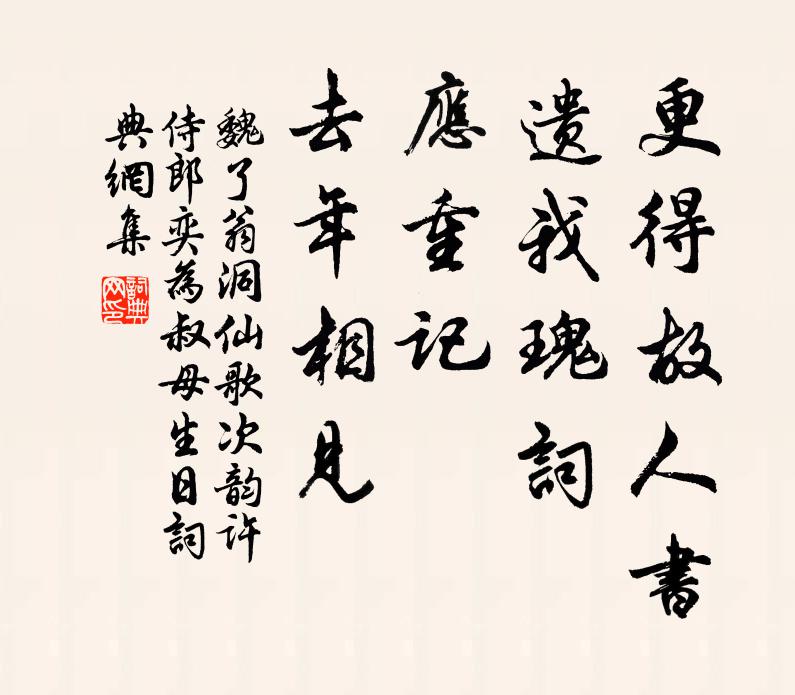 更得故人書
遺我瑰詞
應重記
去年相見
魏了翁洞仙歌次韵許
侍郎奕為叔母生日詞
典網集
詞典
网印